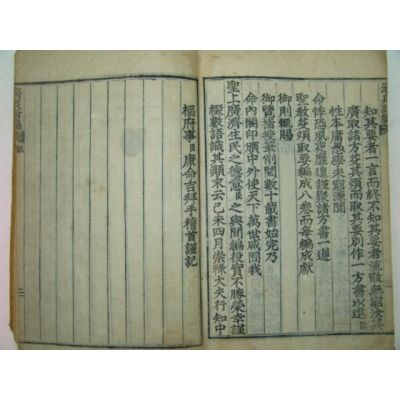 知其要者一言而終不知其要者流散無窮汝其
廣取諸方芟其煩而取其要別作一方書以進臣
性本庸愚學未窺源聞
命悸恐夙夜靡遑謹聚諸方書一遵
聖敎芟煩取要編成八卷而每編成獻
御則輒賜
御覽指授筆削閱數十載書始完乃
命內閣印頒中外使天下萬世咸囿我
聖上廣濟生民之德意臣之與聞編校實不勝榮幸謹
綴數語識其顚末云己未四月崇祿大夫行知中
樞府事臣康命吉拜手稽首謹記
二